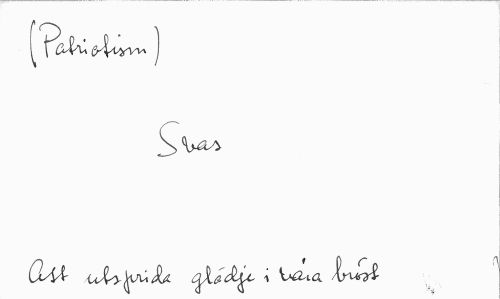 (Patriotism)
Svas
Att utsprida glädje i våra bröst